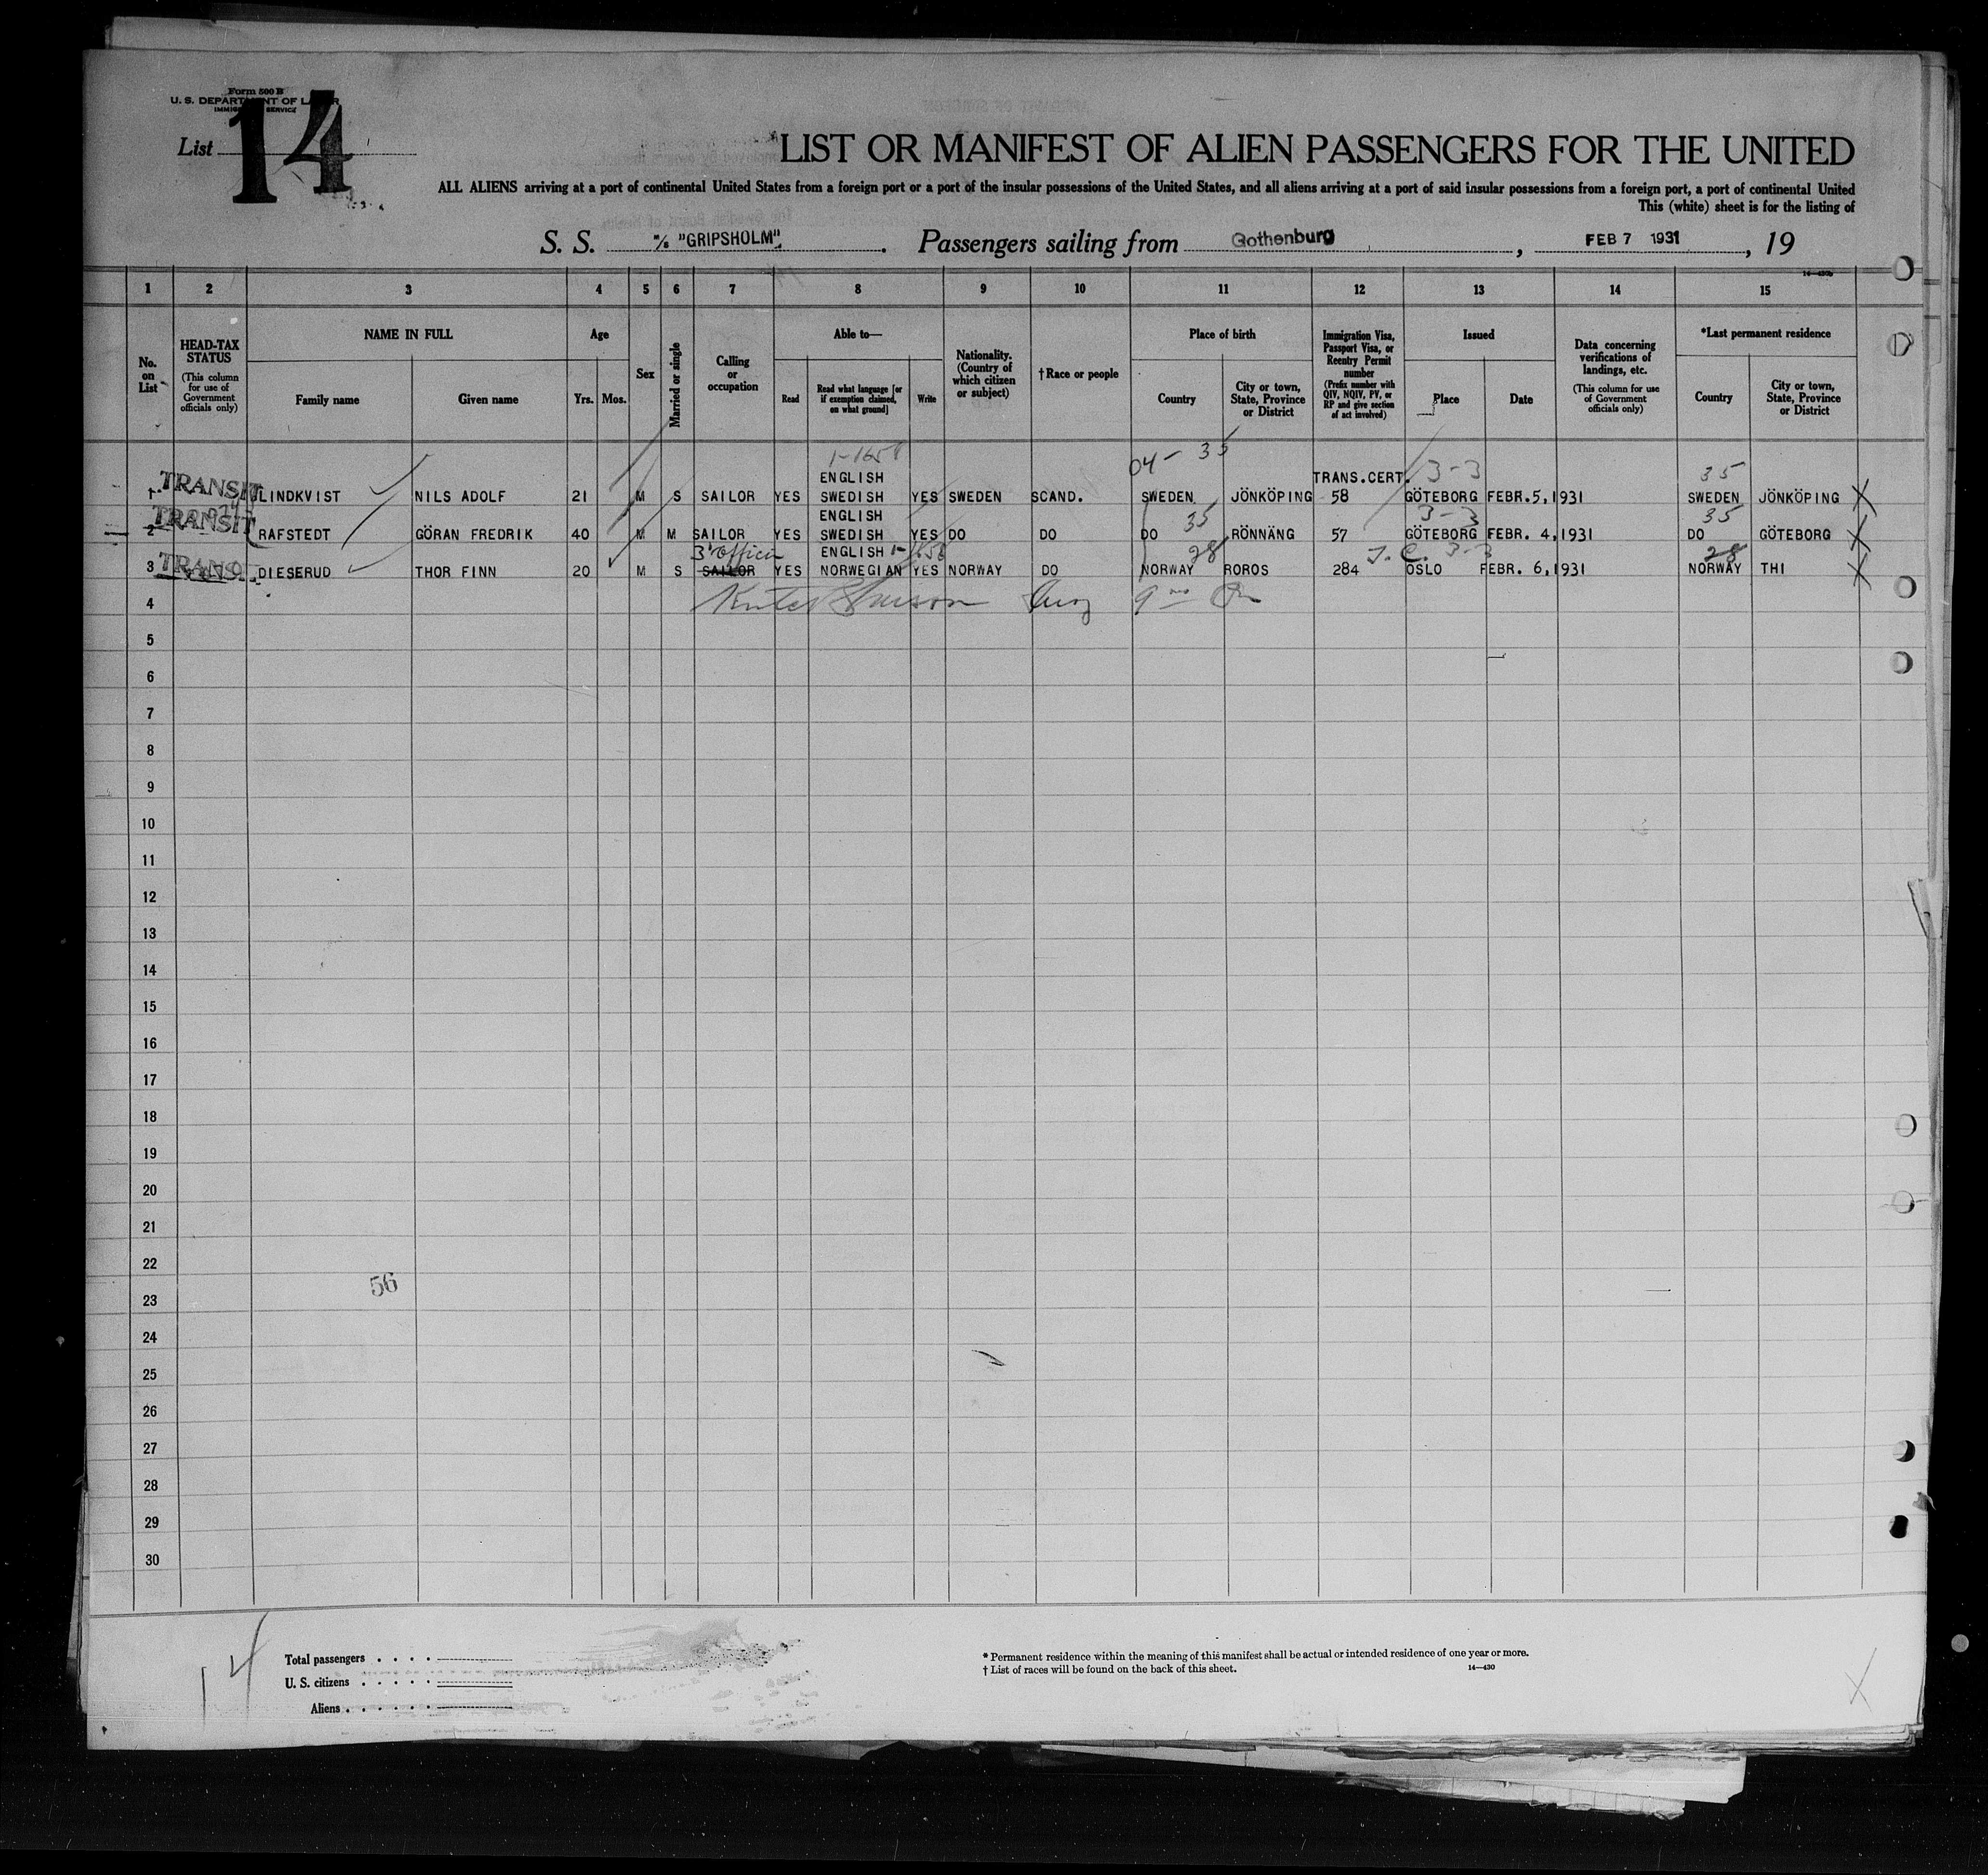 Form 500 B
U. S. DEPARTMENT OF LABOR
IMMIGRATION SERVICE
List 14
LIST OR MANIFEST OF ALIEN PASSENGERS FOR THE UNITED
ALL ALIENS arriving at a port of continental United States from a foreign port or a port of the insular possessions of the United States, and all aliens arriving at a port of said insular possessions from a foreign port, a port of continental United
This (white) sheet is for the listing of
S. S. M/S "GRIPSHOLM". Passengers sailing from Gothenburg, FEB 7 1931, 19
14—430b
1 2 3 4 5 6 7 8 9 10 11 12 13 14 15
No. on List
HEAD-TAX STATUS (This column for use of Government officials only)
NAME IN FULL
Family name Given name
Age
Yrs. Mos.
Sex
Married or single
Calling or occupation
Able to—
Read Read what language [or if exemption claimed, on what ground] Write
Nationality. (Country of which citizen or subject)
†Race or people
Place of birth
Country City or town, State, Province or District
Immigration Visa, Passport Visa, or Reentry Permit number (Prefix number with QIV, NQIV, PV, or RP and give section of act involved)
Issued
Place Date
Data concerning verifications of landings, etc. (This column for use of Government officials only)
*Last permanent residence
Country City or town, State, Province or District
04- 35 3-3 35
ENGLISH TRANS.CERT.
1 TRANSIT LINDKVIST NILS ADOLF 21 M S SAILOR YES SWEDISH YES SWEDEN SCAND. SWEDEN JÖNKÖPING 58 GÖTEBORG FEBR.5,1931 SWEDEN JÖNKÖPING X
ENGLISH 35 3-3 35
2 TRANSIT RAFSTEDT GÖRAN FREDRIK 40 M M SAILOR YES SWEDISH YES DO DO DO RÖNNÄNG 57 GÖTEBORG FEBR. 4,1931 DO GÖTEBORG X
3rd Officer ENGLISH 28 T. C. 3-3 28
3 TRANS DIESERUD THOR FINN 20 M S SAILOR YES NORWEGIAN YES NORWAY DO NORWAY ROROS 284 OSLO FEBR. 6,1931 NORWAY THI X
4
5
6
7
8
9
10
11
12
13
14
15
16
17
18
19
20
21
22
56
23
24
25
26
27
28
29
30
14
Total passengers . . . .
U. S. citizens . . . . .
Aliens . . . . . .
* Permanent residence within the meaning of this manifest shall be actual or intended residence of one year or more.
† List of races will be found on the back of this sheet.
14—430
X